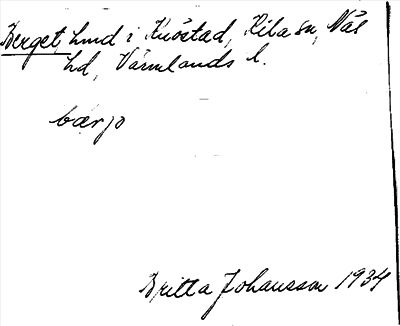 Berget, lmd i Knöstad, Kila sn, Näs
hd, Värmlands l.
bærjo
Britta Johansson 1934